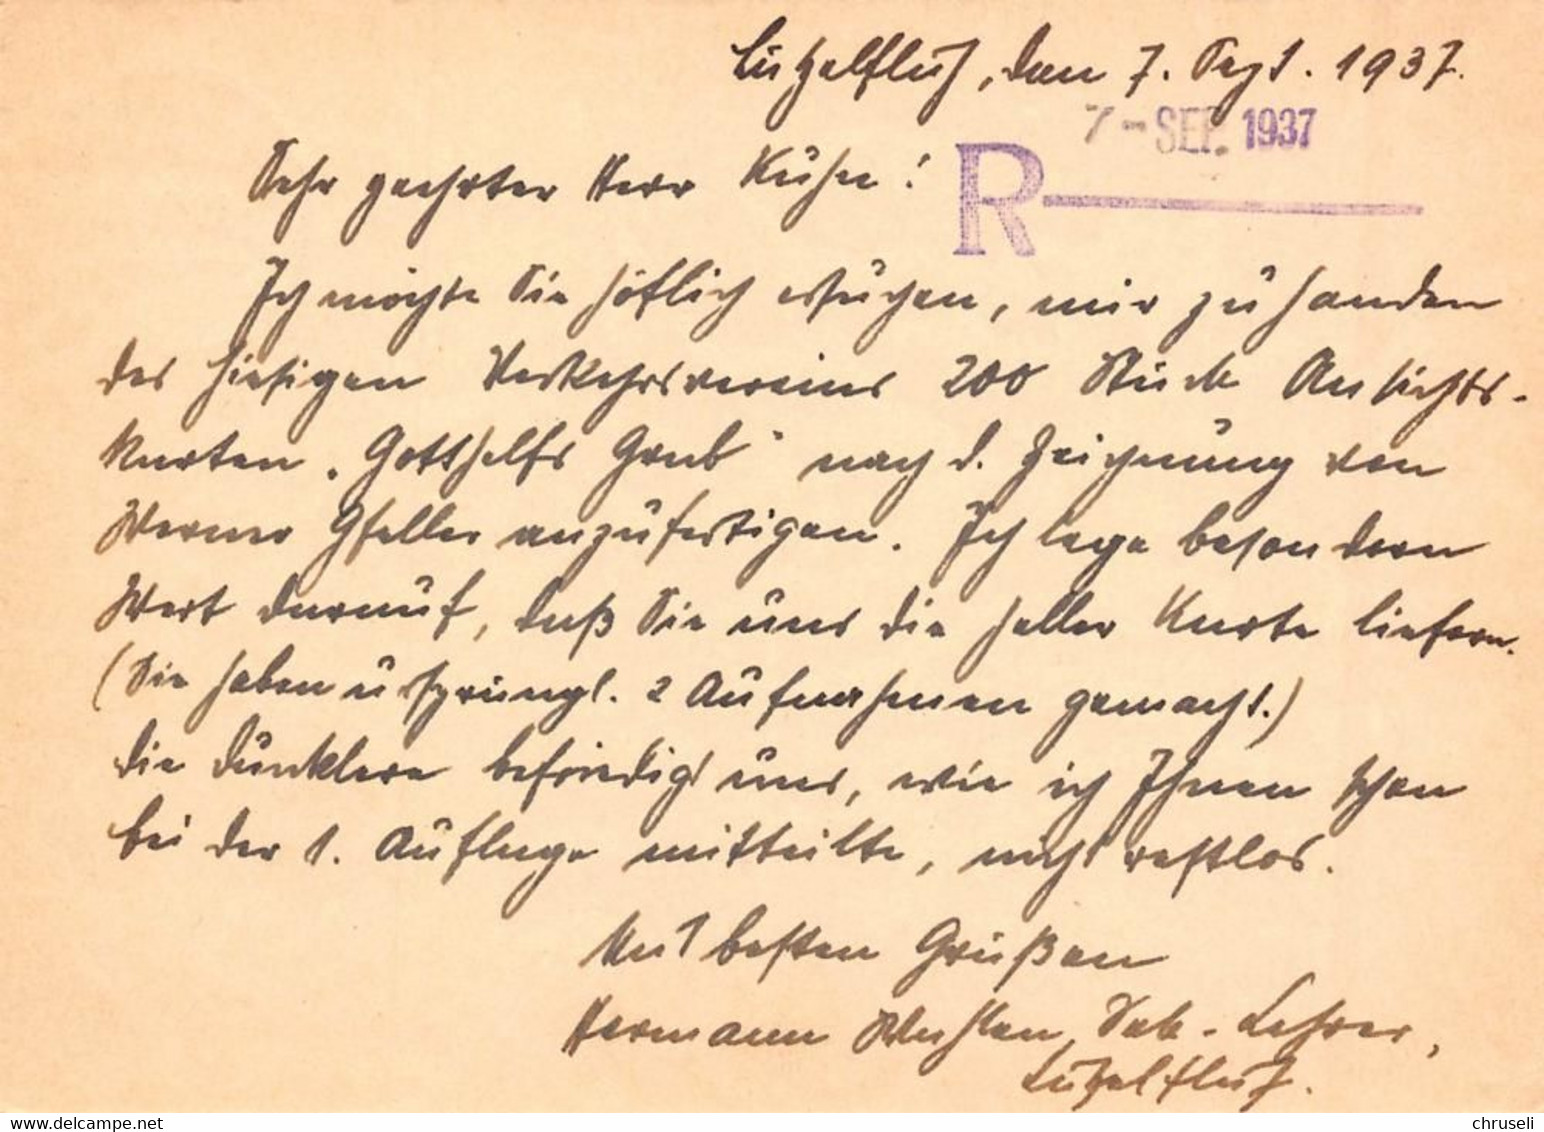 Lützelflüh, den 7. Sept. 1937.
7 - SEP. 1937
R
Sehr geehrter Herr Kühn!
Ich möchte Sie höflich ersuchen, mir zu handen
des hiesigen Verkehrsvereins 200 Stück Ansichts-
karten „Gotthelfs Grab" nach d. Zeichnung von
Werner Gfeller anzufertigen. Ich lege besondern
Wert darauf, daß Sie uns die heller Karte liefern.
(Sie haben ursprüngl. 2 Aufnahmen gemacht.)
Die dunklere befriedigt uns, wie ich Ihnen schon
bei der 1. Auflage mitteilte, nicht restlos.
Mit besten Grüßen
Hermann Wahlen, Sek-Lehrer,
Lützelflüh.
chruseli